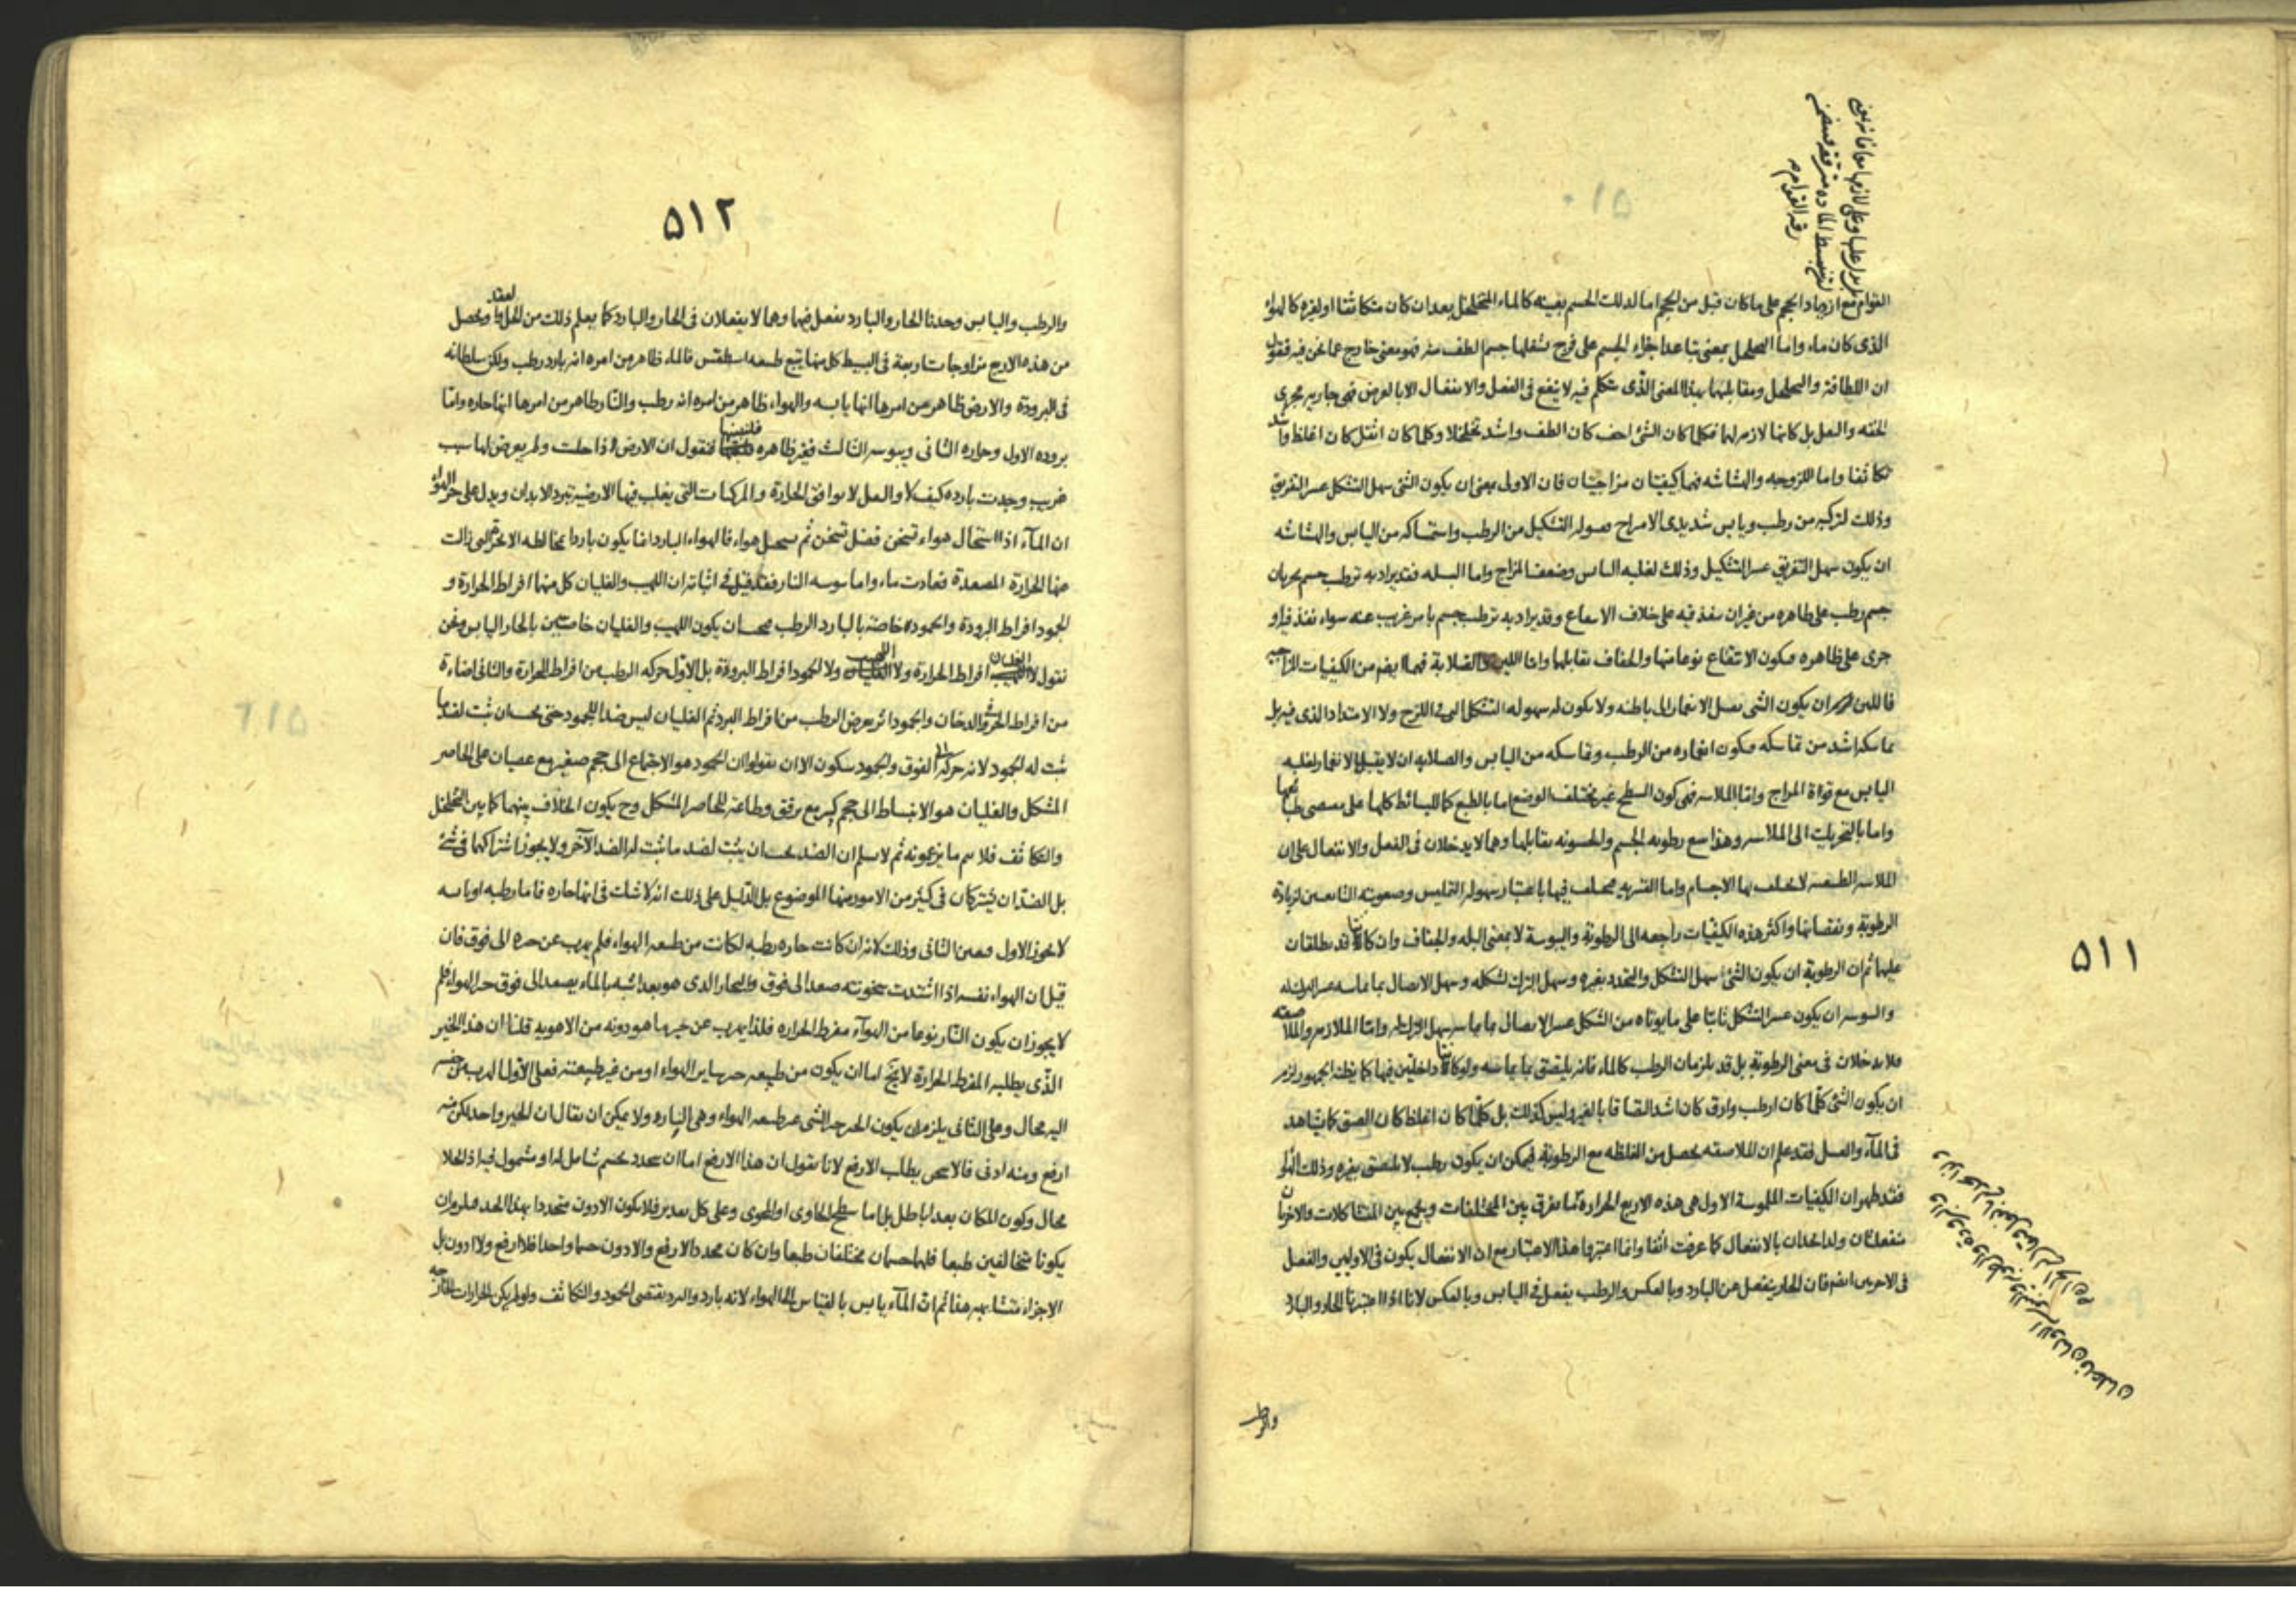 ٥١١
القوام مع ازدياد الحجم على ما كان قبل من الحجم اما لذلك الجسم بعينه كالماء المتخلخل بعد ان كان متكاثفا او لغيره كالهواء
الذى كان ماء واما التخلخل بمعنى تباعد اجزاء الجسم على فرج يشغلها جسم الطف منه فهو معنى خارج عما نحن فيه فنقول
ان اللطافة والتخلخل ومقابليهما بهذا المعنى الذى نتكلم فيه لا ينفع فى الفعل والانفعال الا بالعرض فهى جاريه مجرى
الخفه والثقل بل كانها لازم لها فكلما كان الشئ اخف كان الطف واشد تخلخلا وكلما كان اثقل كان اغلظ واشد
تكاثفا واما اللزوجه والهشاشه فهما كيفيتان مزاجيتان فان الاولى بمعنى ان يكون الشئ سهل التشكل عسر التفريق
وذلك لتركبه من رطب ويابس شديدى الامتزاج فسهوله التشكيل من الرطب واستمساكه من اليابس والهشاشه
ان يكون سهل التفريق عسر التشكيل وذلك لغلبه اليابس وضعف المزاج واما البله فقد يراد به ترطب جسم بجريان
جسم رطب على ظاهره من غير ان ينفذ فيه على خلاف الانتقاع وقد يراد به ترطب جسم يابس غريب عنه سواء نفذ فيه او
جرى على ظاهره فيكون الانتقاع نوعا منها والجفاف يقابلها واما اللين والصلابة فهما ايضا من الكيفيات المزاجيه
فاللين هو ان يكون الشئ يقبل الانغمار الى باطنه ولا يكون له سهوله التشكل التى فى اللزج ولا الامتداد الذى فيه بل
تماسكه اشد من تماسكه فيكون انغماره من الرطب وتماسكه من اليابس والصلابه ان لا يقبل الانغمار لغلبه
اليابس مع قوة المزاج واما الملاسه فهى كون السطح غير مختلف الوضع اما بالطبع كما للبسائط كلها على مقتضى طباعها
واما بالتحريك الى الملاسه وهذا مع رطوبه الجسم والخشونه يقابلها وهما لا يدخلان فى الفعل والانفعال على ان
الملاسه الطبيعيه لا يختلف بها الاجسام واما القسريه مختلف فيها باعتبار سهوله التمليس وصعوبته التابعين لزيادة
الرطوبة ونقصانها واكثر هذه الكيفيات راجعه الى الرطوبة واليبوسة لا بمعنى البله والجفاف وان كانتا قد يطلقان
عليهما ثم ان الرطوبة ان يكون الشئ سهل التشكل والتحدد بغيره وسهل الترك لشكله وسهل الاتصال بما يماسه
واليبوسه ان يكون عسر التشكل ثابتا على ما يؤتاه من الشكل عسر الاتصال بما يماسه سهل الترك له واما الملازمه والملاصقه
فلا يدخلان فى معنى الرطوبة بل قد يلزمان الرطب كالماء فانه يلتصق بما يماسه ولو كانتا داخلتين فيها كما يظنه الجمهور لزم
ان يكون الشئ كلما كان ارطب وارق كان اشد التصاقا بالغير وليس كذلك بل كلما كان اغلظ كان الصق كما يشاهد
فى الماء والعسل فقد علم ان الملاصقه يحصل من الغلظه مع الرطوبة فيمكن ان يكون رطب لا يلتصق بغيره وذلك الهواء
فقد ظهر ان الكيفيات الملموسة الاول هى هذه الاربع الحرارة تفرق بين المختلفات ويجمع بين المتشاكلات والاخريان
منفعلتان ولذا يحدان بالانفعال كما عرفت انفا وانما اعتبرنا هذا الاعتبار مع ان الانفعال يكون فى الاوليين والفعل
فى الاخريين ايضا فان الحار ينفعل عن البارد وبالعكس والرطب ينفعل فى اليابس وبالعكس لانا اذا اعتبرنا الحار والبارد
والرطب
٥١٢
والرطب واليابس وجدنا الحار والبارد يفعل فيهما وهما لا يفعلان فى الحار والبارد كما يعلم ذلك من الحل والعقد ويحصل
من هذه الاربع مزاوجات اربعة فى البسيط كل منها يتبع طبيعه اسطقس فالماء ظاهر من امره انه بارد رطب ولكن سلطانه
فى البرودة والارض ظاهر من امرها انها يابسه والهواء ظاهر من امره انه رطب والنار ظاهر من امرها انها حاره واما
بروده الاول وحراره الثانى ويبوسه الثالث فغير ظاهره فلنبينها فنقول ان الارض اذا خليت ولم يعرض لها سبب
غريب وجدت بارده كيف لا والثقل لا يوافق الحرارة والمركبات التى يغلب فيها الارضية تبرد الابدان ويدل على حر الهواء
ان الماء اذا استحال هواء تسخن فضل تسخن ثم يستحيل هواء فالهواء البارد انما يكون باردا بمخالطه الابخرة التى زالت
عنها الحرارة المصعدة فعادت ماء واما يبوسه النار فقد قيل فى اثباته ان اللهيب والغليان كل منهما افراط الحرارة و
الجمود افراط البرودة والجمود خاصته بالبارد الرطب فيجب ان يكون اللهيب والغليان خاصتين بالحار اليابس ونحن
نقول لا الغليان افراط الحرارة ولا اللهيب ولا الجمود افراط البرودة بل الاول حركه الرطب من افراط الحرارة والثانى اضاءة
من افراط الحر فى الدخان والجمود اثر يعرض الرطب من افراط البرد ثم الغليان ليس ضد الجمود حتى يجب ان يثبت لضد ما
يثبت له الجمود لانه حركه الى الفوق والجمود سكون الا ان يقولوا ان الجمود هو الاجتماع الى حجم صغير مع عصيان على الحاصر
المشكل والغليان هو الانبساط الى حجم كبير مع ترقق وطاعة للحاصر المشكل وح يكون الخلاف بينهما كما بين التخلخل
والتكاثف فلا يتم ما يزعمونه ثم لا نسلم ان الضد يجب ان يثبت لضد ما يثبت له الضد الآخر ولا يجوز اشتراكهما فى شئ
بل الضدان يشتركان فى كثير من الامور منها الموضوع بل الدليل على ذلك انه لا شك فى انها حاره فاما رطبه او يابسه
لا يجوز الاول فتعين الثانى وذلك لانه ان كانت حاره رطبه لكانت من طبيعه الهواء فلم يهرب عن حره الى فوق فان
قيل ان الهواء نفسه اذا اشتدت سخونته صعد الى فوق والبخار الذى هو بعد اشبه بالماء يصعد الى فوق حر الهواء فلم
لا يجوز ان يكون النار نوعا من الهواء مفرط الحراره فلذا يهرب عن حيز ما هو دونه من الاهويه قلنا ان هذا الحيز
الذى يطلبه المفرط الحرارة لا يخ اما ان يكون من طبيعه حيز ساير الهواء او من غير طبيعته فعلى الاول الهرب عن جنسه
اليه محال وعلى الثانى يلزم ان يكون الحر الشئ عن طبيعه الهواء وهى الناره ولا يمكن ان يقال ان الحيز واحد لكن منه
ارفع ومنه ادنى فالاسخن يطلب الارفع لانا نقول ان هذا الارفع اما ان يتحدد بجسم شامل له او مشمول فيه اذ الخلا
محال وكون المكان بعدا باطل بل اما سطح الحاوى او المحوى وعلى كل تقدير فلا يكون الادون متحددا بهذا الحد فيلزم ان
يكونا متخالفين طبعا فلهما جسمان مختلفان طبعا وان كان محدد الارفع والادون جسما واحدا فلا ارفع ولا ادون بل
الاجزاء متشابهه هذا ثم ان الماء يابس بالقياس الى الهواء لانه بارد والبرد يقتضى الجمود والتكاثف ولو لم يكن الحرارات الخارجه